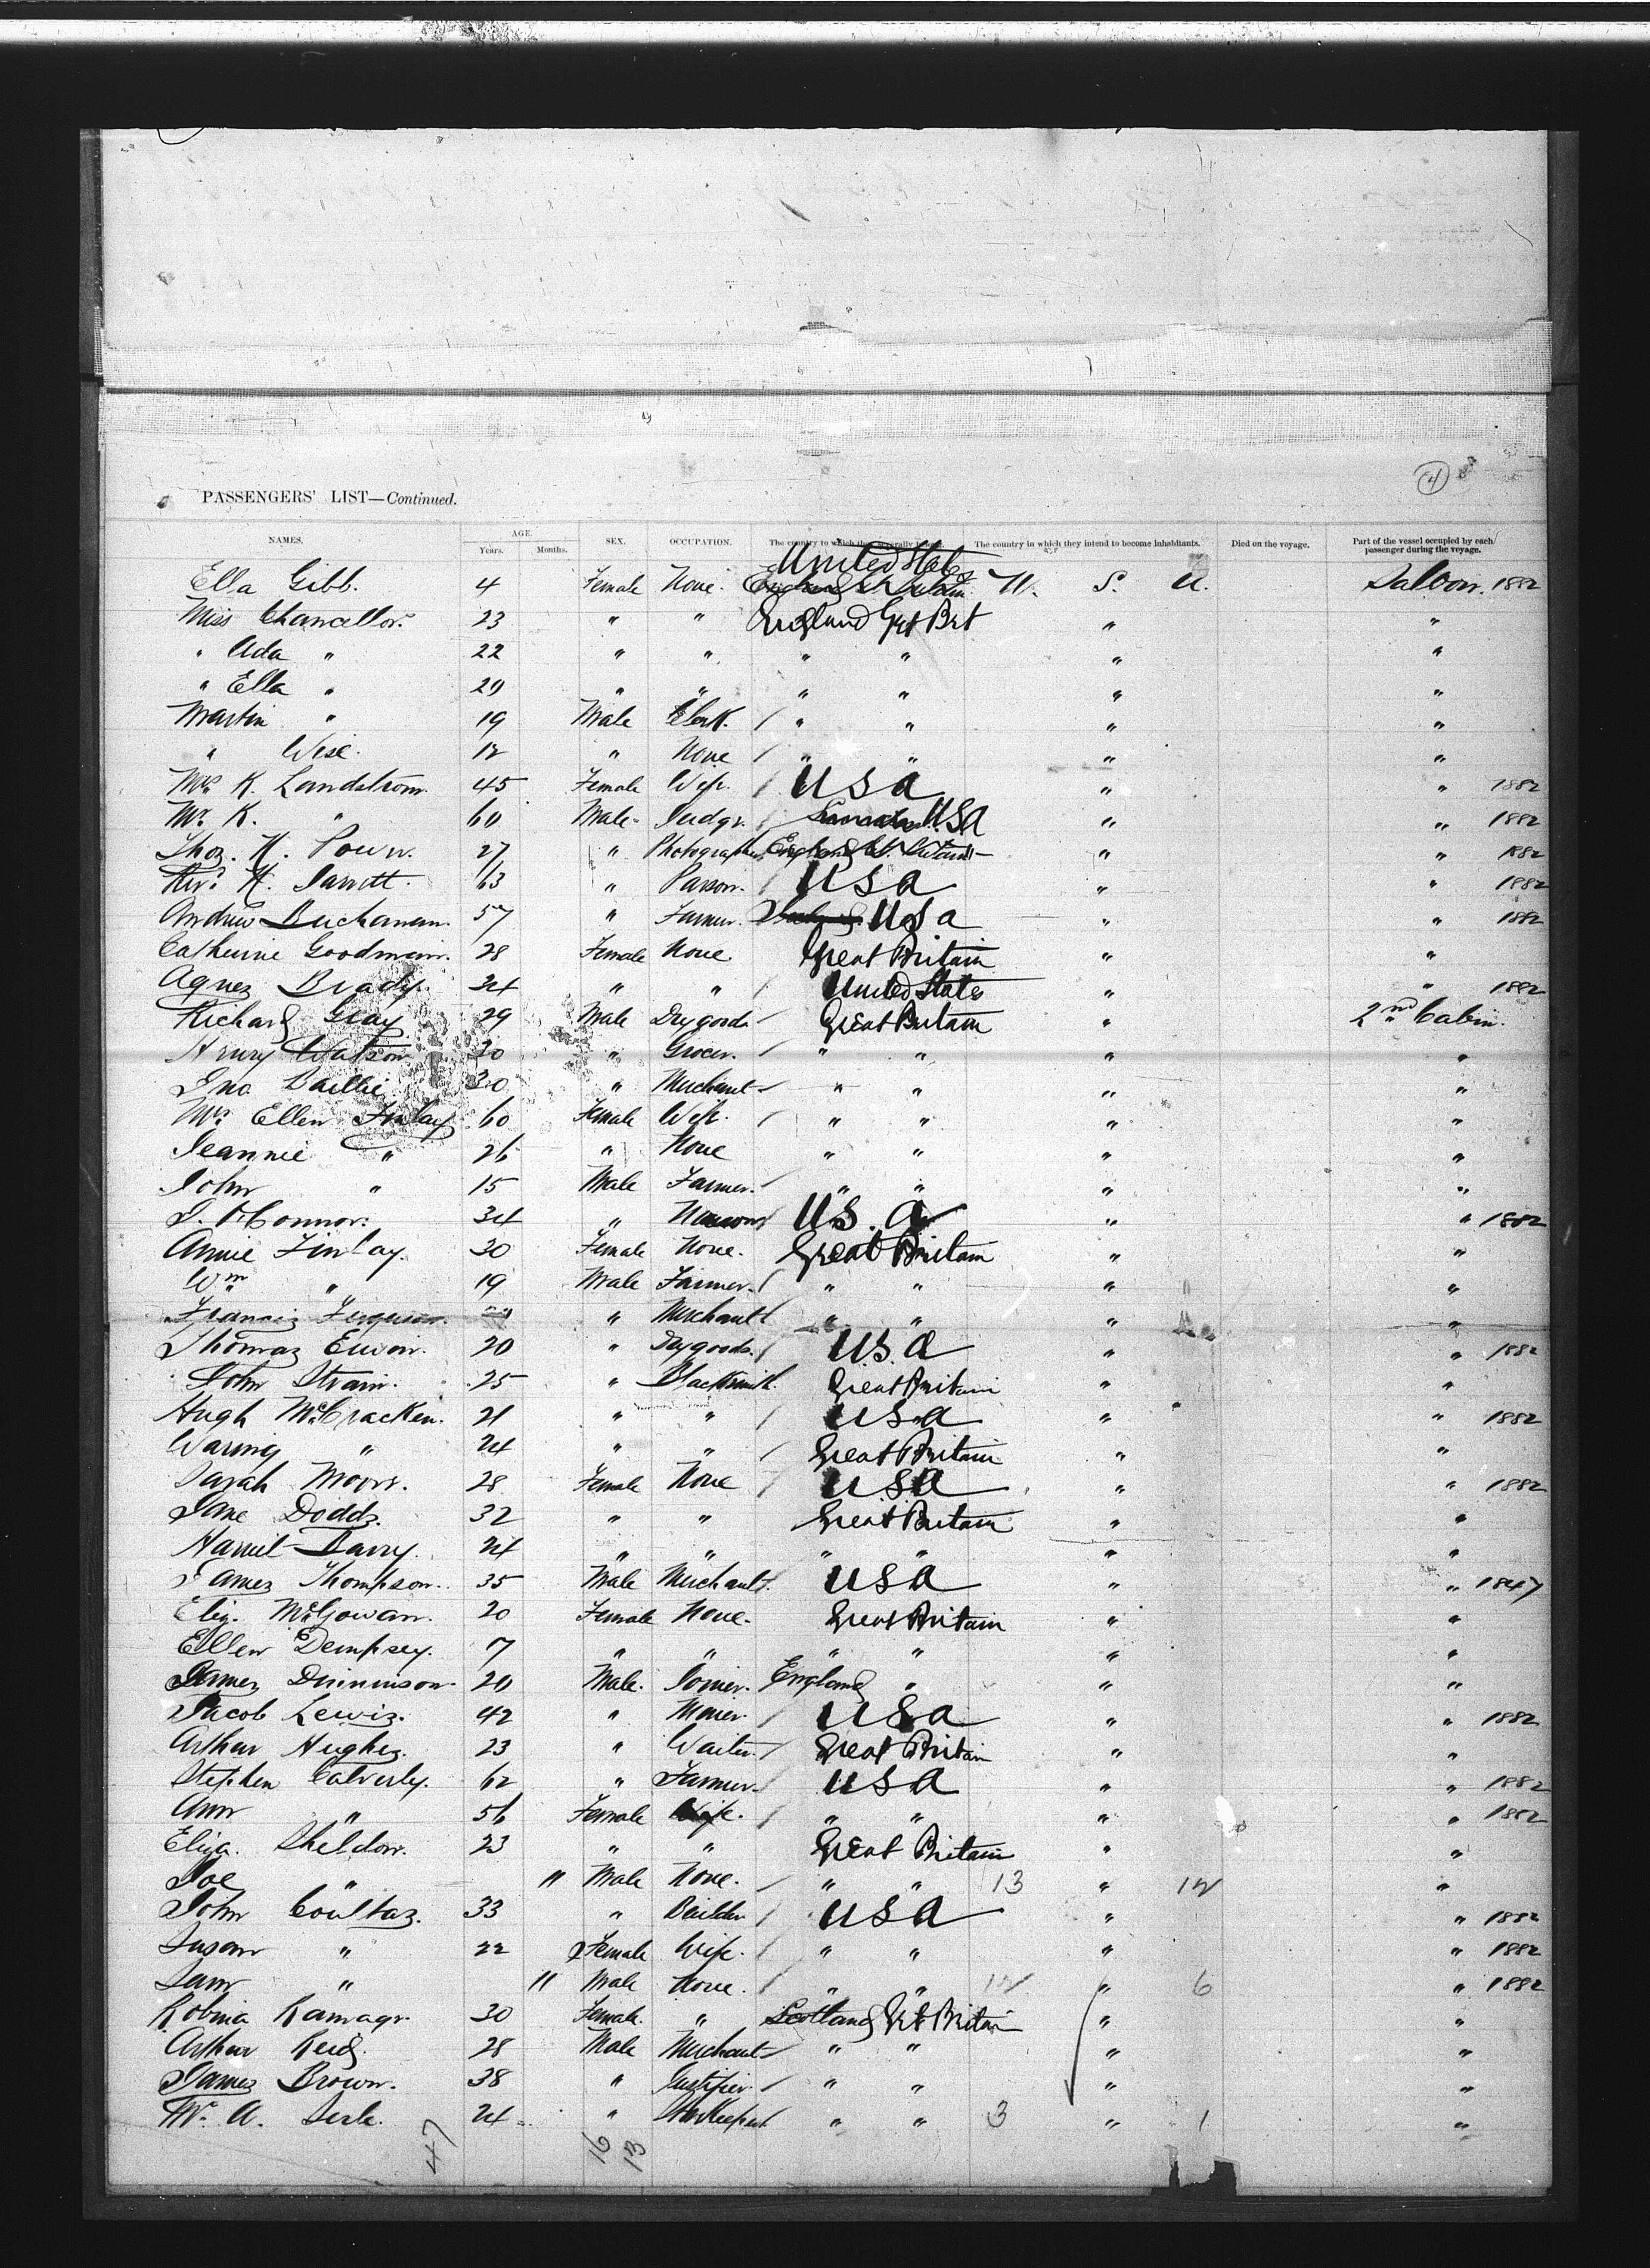 4
PASSENGERS' LIST—Continued.
NAMES. AGE. Years. Months. SEX. OCCUPATION. The country to which they severally belong. The country in which they intend to become inhabitants. Died on the voyage. Part of the vessel occupied by each passenger during the voyage.
United States
Ella Gibb. 4 Female None. U. S. A. Saloon. 1882
Miss Chancellor. 23 " " England Gt Brit " "
" Ada " 22 " " " " " "
" Ella " 20 " " " " " "
Martin " 19 Male Clerk. " " " "
" Wise. 12 " None " " " "
Mrs K. Landstrom. 45 Female Wife. USA " " 1882
Mr K. " 60 Male Judge. USA " " 1882
Thos. H. 27 " Photographer England " " 1882
Revd H. Jarrett. 63 " Parson. USA " " 1882
Andrew Buchanan. 57 " Farmer. USA " " 1882
Catherine Goodman. 28 Female None Great Britain " "
Agnes Brady. 24 " " United States " " 1882
Richard Gray 29 Male Drygoods Great Britain " 2nd Cabin.
Henry Watson 30 " Grocer. " " " "
Jno. Baillie 30 " Merchant " " " "
Mrs Ellen Finlay 60 Female Wife. " " " "
Jeannie " 26 " None " " " "
John " 15 Male Farmer. " " " "
J. O'Connor. 34 " US.A " " 1882
Annie Finlay. 30 Female None. Great Britain " "
Wm " 19 Male Farmer. " " " "
Francis Ferguson. " Merchant " " " "
Thomas Erwin. 20 " Drygoods. U.S.A " " 1882
John Strain. 25 " Blacksmith. Great Britain " "
Hugh McCracken. 21 " " USA " " 1882
Waring " 24 " " Great Britain " "
Sarah Moore. 28 Female None USA " " 1882
Jane Dodds. 32 " " Great Britain " "
Harriet Barry. 24 " " " " " "
James Thompson. 35 Male Merchant. USA " " 1847
Eliz. McGowan. 20 Female None. Great Britain " "
Ellen Dempsey. 7 " " " " " "
James Dinninson. 20 Male. Joiner. England " " "
Jacob Lewis. 42 " Miner. USA " " 1882
Arthur Hughes. 23 " Waiter. Great Britain " "
Stephen Calverley. 62 " Farmer. USA " " 1882
Ann " 56 Female Wife. " " " " 1882
Eliza. Sheldon. 23 " " Great Britain " "
Joe " 11 Male None. " " 13 " 12 "
John Coultas. 33 " Builder USA " " 1882
Susan " 22 Female Wife. " " " " 1882
Sam " 11 Male None. " " 12 " 6 " 1882
Robina Ramage. 30 Female. " Scotland Gt Britain " "
Arthur Reid. 28 Male Merchant " " " "
James Brown. 38 " " " " "
Mr A. 24 " Storekeeper " " 3 " 1 "
47 16 13